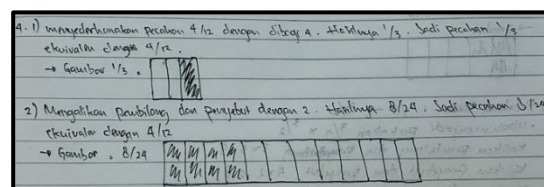 4. 1) menyederhanakan pecahan 4/12 dengan dibagi 4. Hasilnya 1/3. Jadi pecahan 1/3
ekuivalen dengan 4/12.
→ Gambar 1/3 :
2) Mengalikan pembilang dan penyebut dengan 2. Hasilnya 8/24. Jadi pecahan 8/24
ekuivalen dengan 4/12
→ Gambar : 8/24